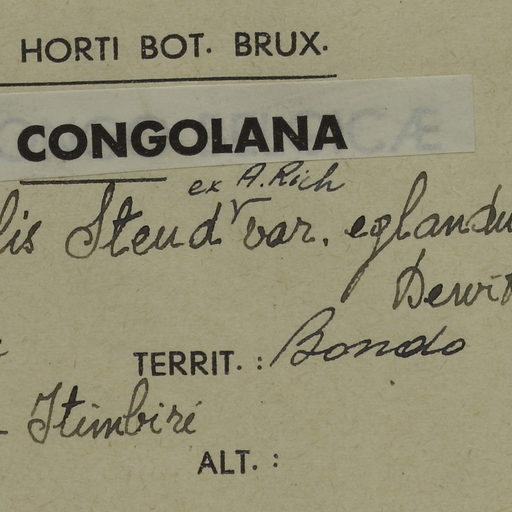 HORTI BOT. BRUX.
CONGOLANA
ex A. Rich
lis Steud var. eglandu
Dewit
TERRIT. : Bondo
Itimbiri
ALT. :